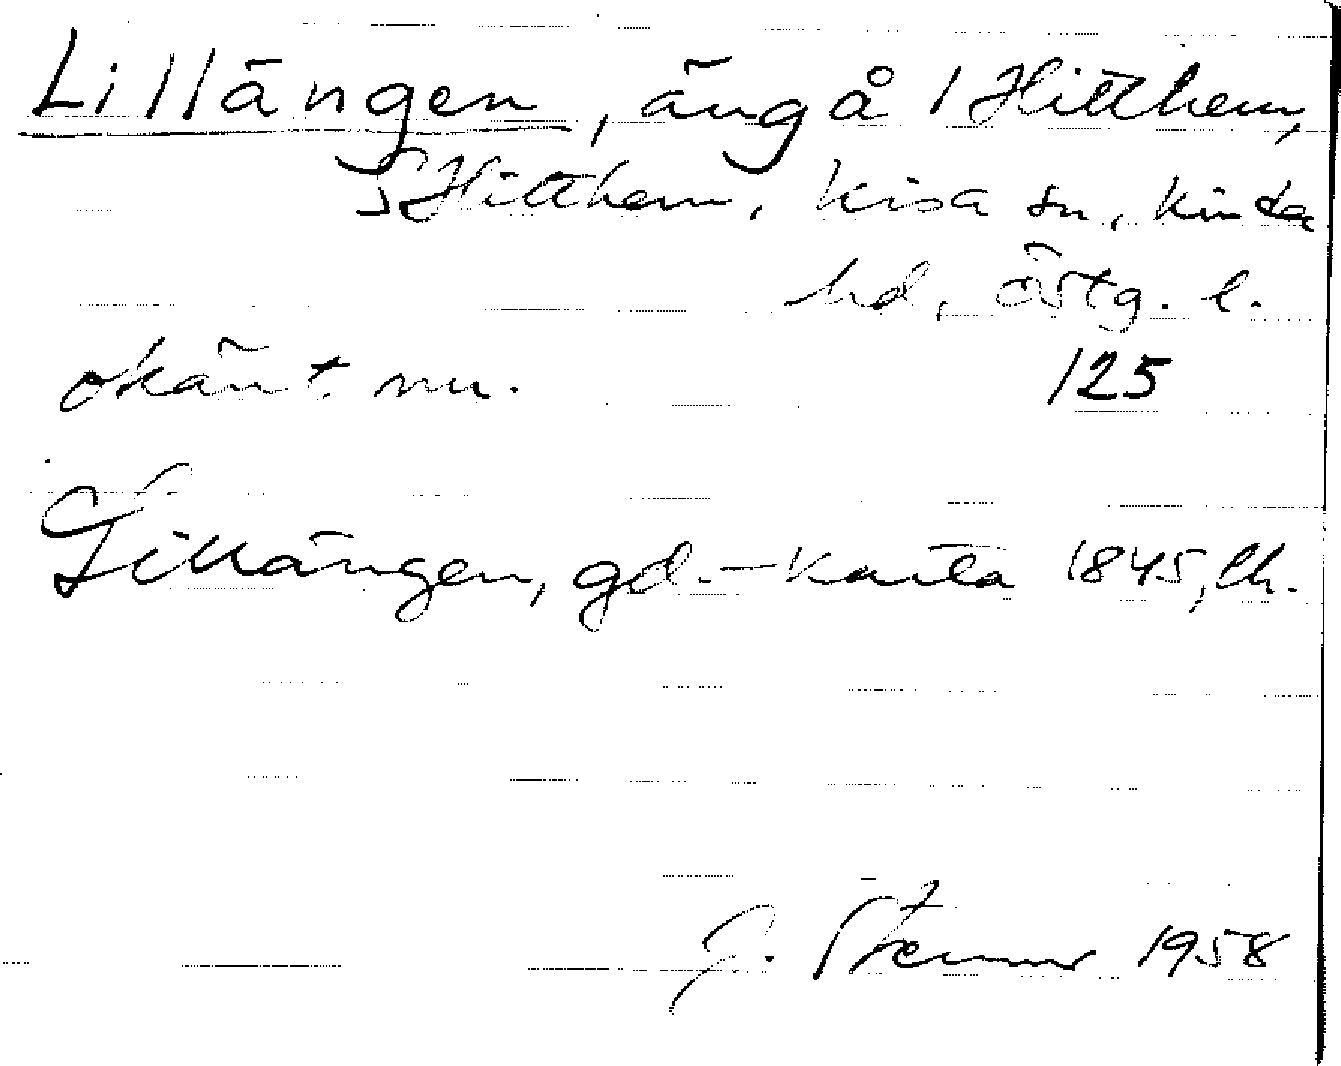 Lillängen, äng å 1 Hitthem,
S Hitthem, Kisa sn, Kinda
hd, Östg. l.
okänt nu. 125
Lillängen, gd.-karta 1845, lh.
J. Stenmr 1958